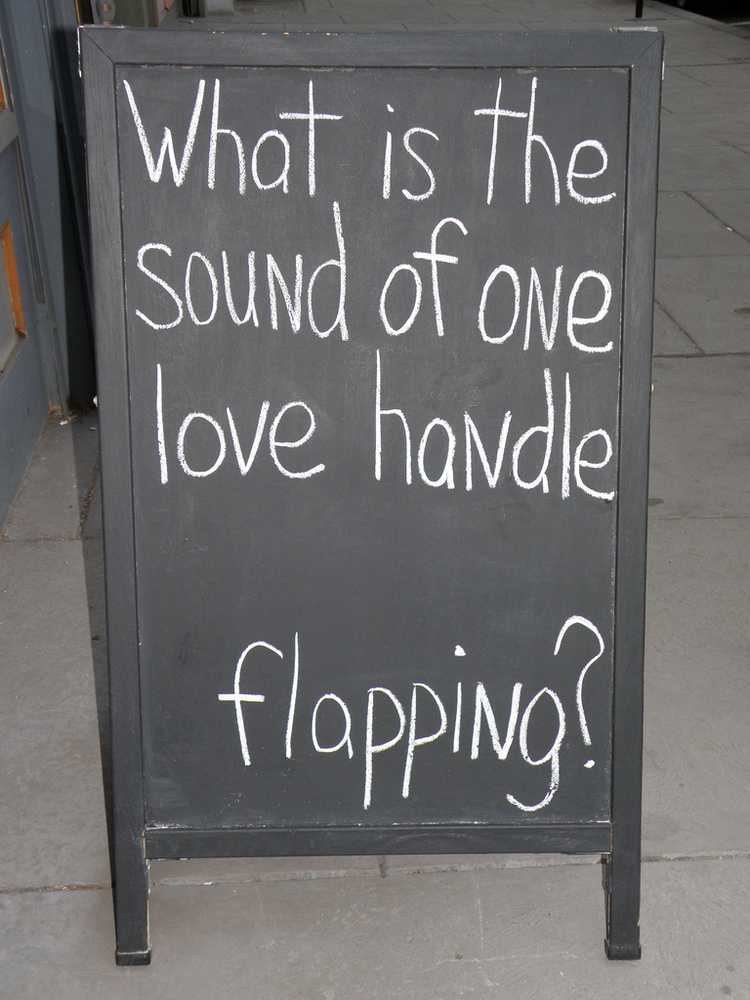 What is the
sound of one
love handle
flapping?